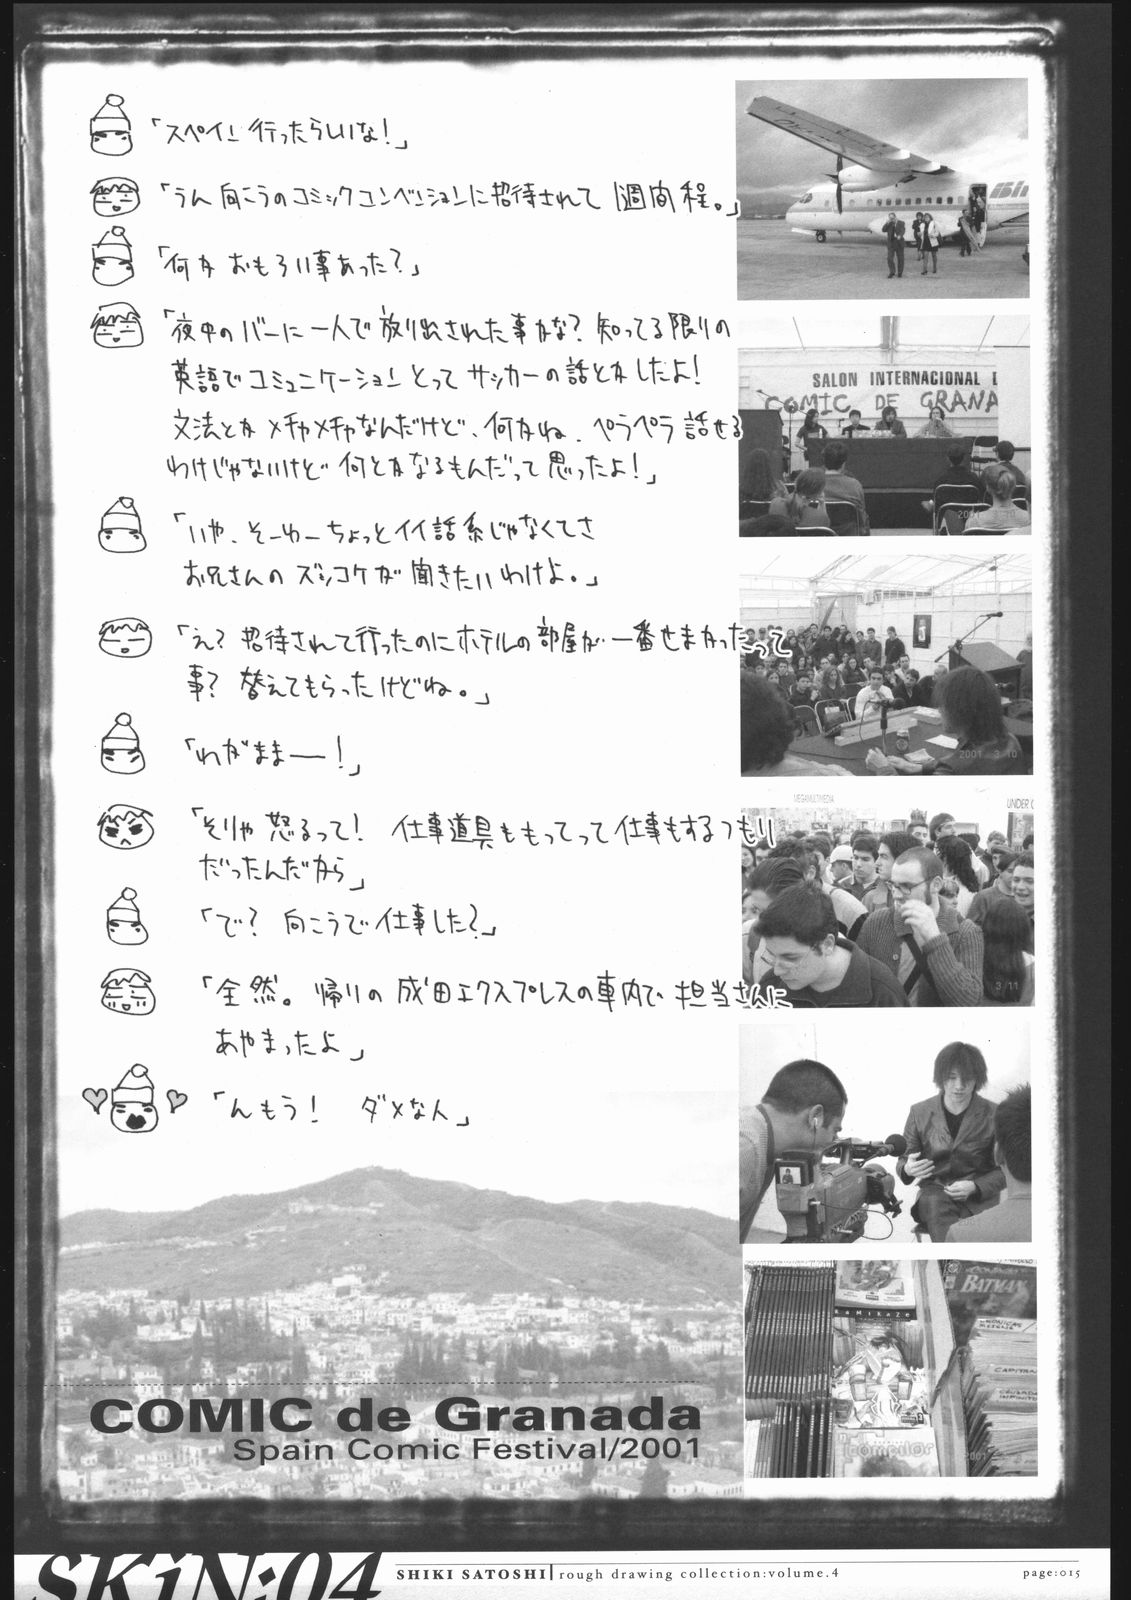 「スペイン行ったらしいな!」
「うん 向こうのコミックコンベンションに招待されて 1週間程。」
「何か おもろい事あった?」
「夜中の バーに 一人で 放り出された事かな? 知ってる限りの
英語で コミュニケーション とって サッカーの話とかしたよ!
文法とか メチャメチャなんだけど、何かね、ペラペラ 話せる
わけじゃないけど 何とかなるもんだって 思ったよ!」
「いや、そーゆーちょっとイイ話系じゃなくてさ
お兄さんの ズッコケが 聞きたいわけよ。」
「え? 招待されて行ったのにホテルの部屋が 一番せまかったって
事? 替えてもらったけどね。」
「わがままー!」
「そりゃ 怒るって! 仕事道具ももってって仕事もするつもり
だったんだから」
「で? 向こうで 仕事した?」
「全然。 帰りの 成田エクスプレスの車内で 担当さんに
あやまったよ」
「んもう! ダメな人」
SALON INTERNACIONAL D
COMIC DE GRANA
2001 3 10
MEGAMULTIMEDIA
UNDER C
3 11
KAMiKAZe
BATMAN
COMIC de Granada
Spain Comic Festival/2001
SKiN:04
SHIKI SATOSHI rough drawing collection:volume.4
page:015